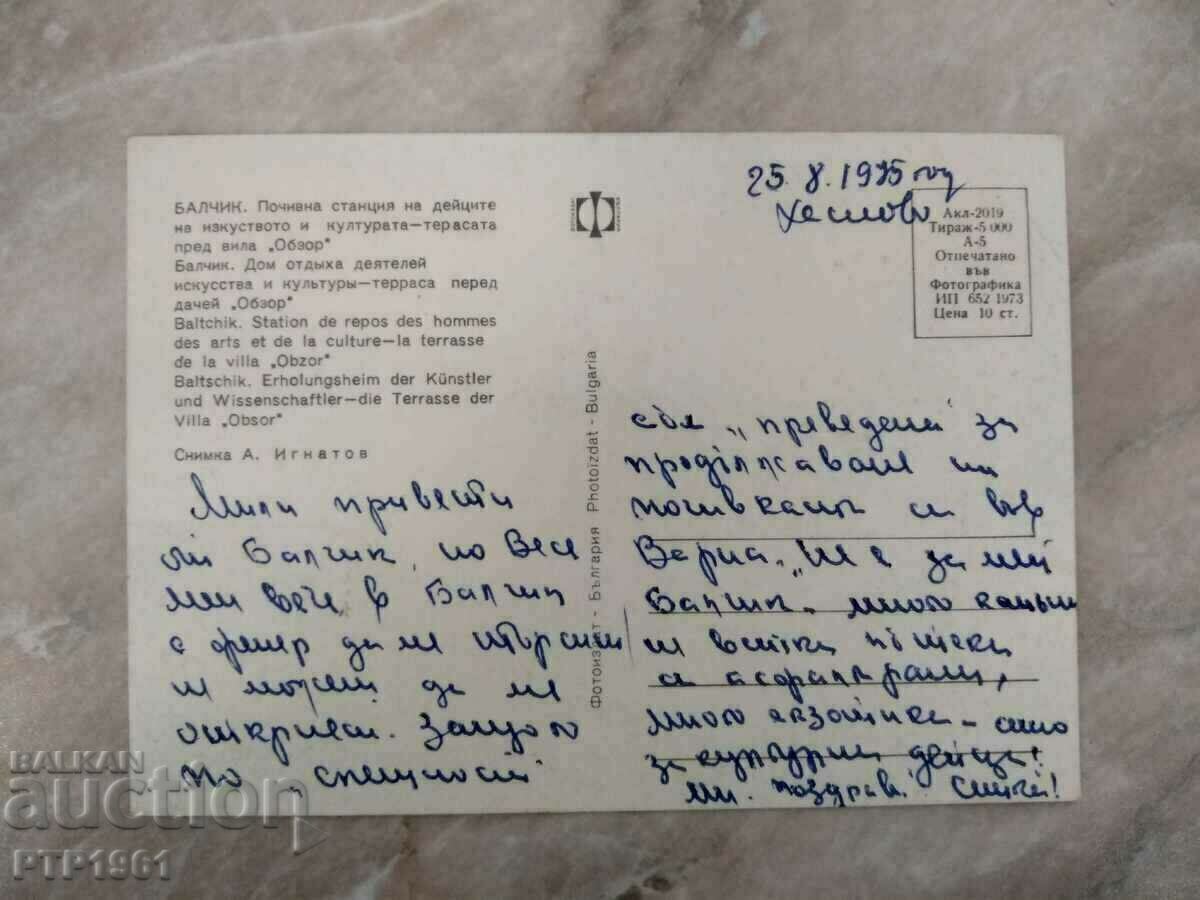 25. 8. 1975 год
БАЛЧИК. Почивна станция на дейците
на изкуството и културата—терасата
пред вила „Обзор"
Балчик. Дом отдыха деятелей
искусства и культуры—терраса перед
дачей „Обзор"
Baltchik. Station de repos des hommes
des arts et de la culture—la terrasse
de la villa „Obzor"
Baltschik. Erholungsheim der Künstler
und Wissenschaftler—die Terrasse der
Villa „Obsor"
Снимка А. Игнатов
Акл-2019
Тираж-5 000
А-5
Отпечатано
във
Фотографика
ИП 652 1973
Цена 10 ст.
Фотоиздат - България Photoizdat - Bulgaria
Мили привети
от Балчик, но
в Балчик
с да ме
не можеш да ме
откриеш. Защото
по „спешност
съм „преведена за
продължаване на
почивката си във
Варна.
Балчик. много
и всички пътеки
са асфалтирани,
много екзотика —
за културни дейци!
поздрави!
BALKAN
auction
PTP1961